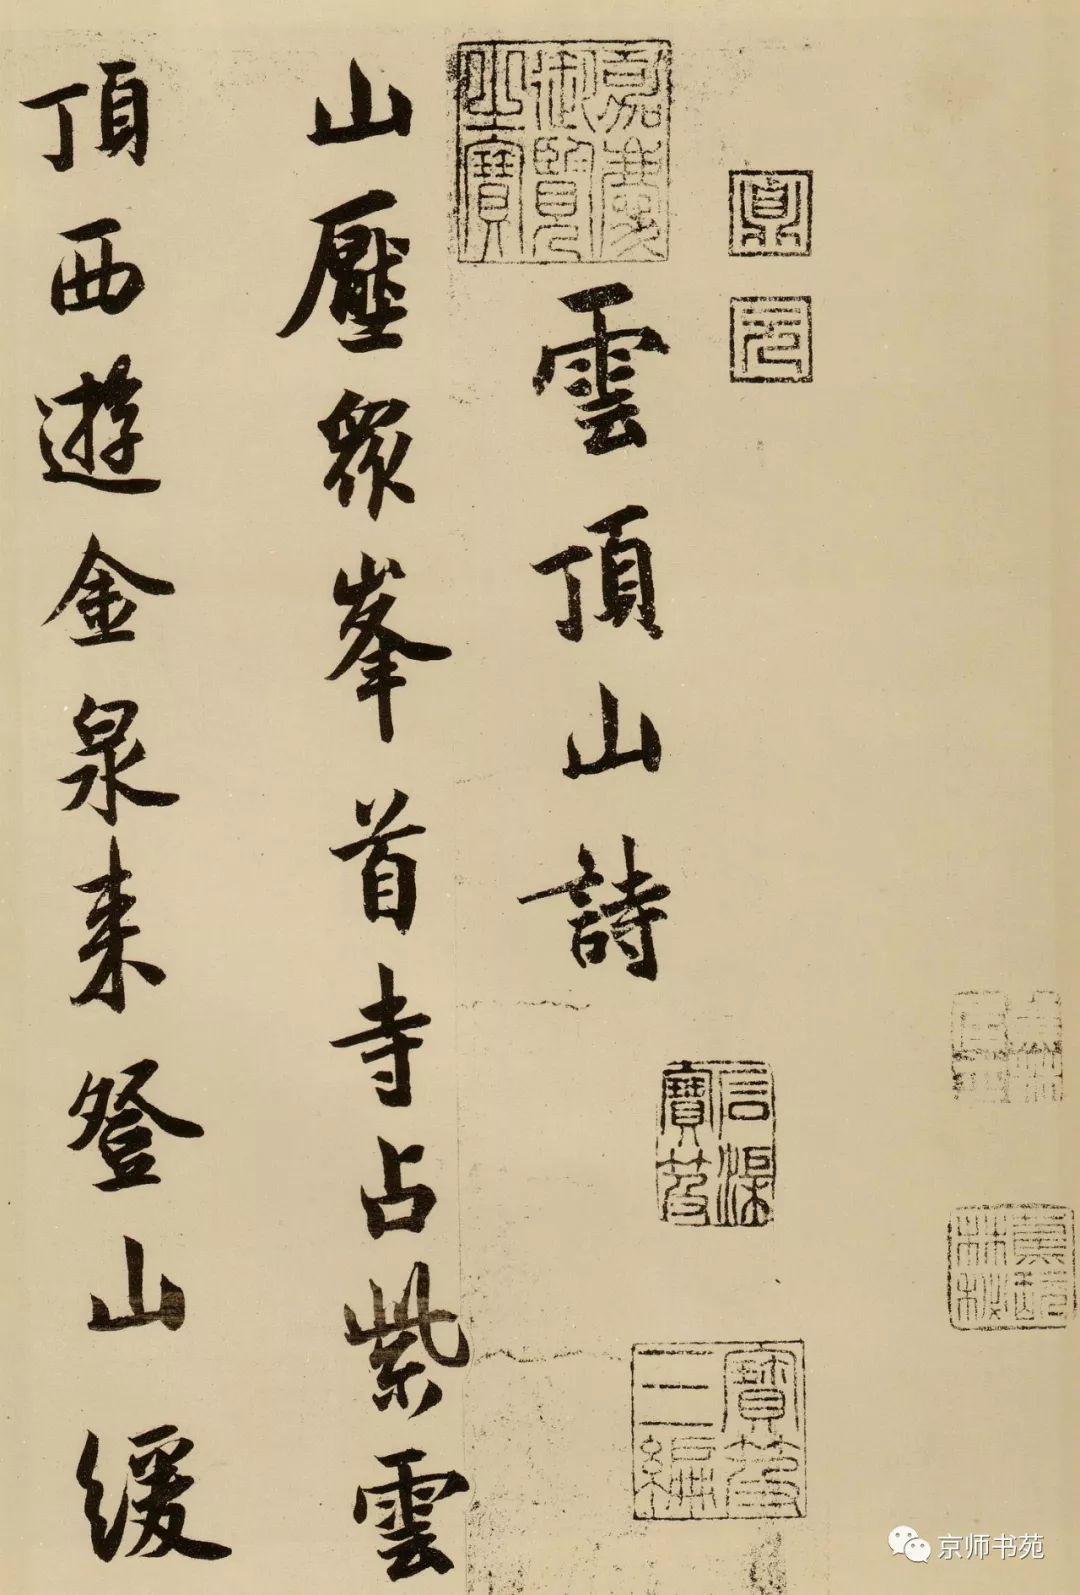 雲頂山詩
山壓衆峯首寺占紫雲
頂西遊金泉来登山緩
嘉慶御覽之寶
石渠寶笈
寶笈三編
京师书苑